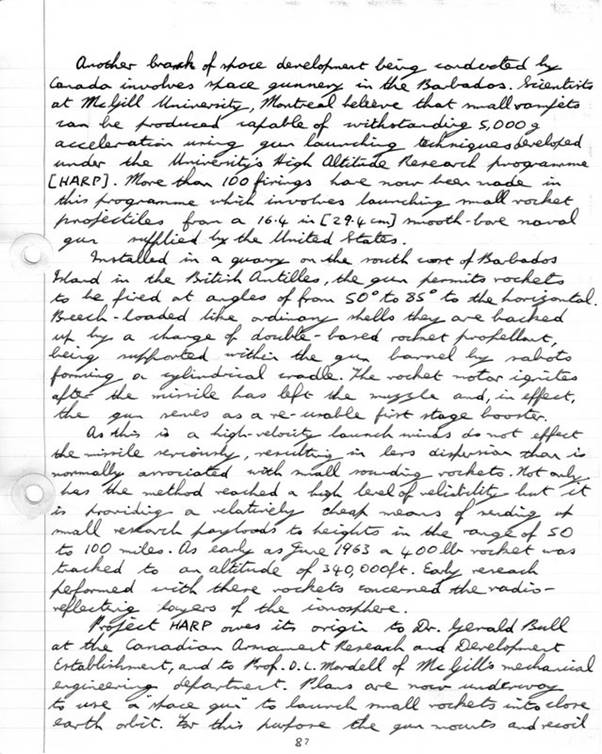 Another branch of space development being conducted by
Canada involves space gunnery in the Barbados. Scientists
at McGill University, Montreal believe that small
can be produced capable of withstanding 5,000 g
acceleration using gun launching techniques developed
under the University's High Altitude Research programme
[HARP]. More than 100 firings have now been made in
this programme which involves launching small rocket
projectiles from a 16.4 in [29.4 cm] smooth-bore naval
gun supplied by the United States.
Installed in a quarry on the south cost of Barbados
Island in the British Antilles, the gun permits rockets
to be fired at angles of from 50° to 85° to the horizontal.
Breech-loaded like ordinary shells they are backed
up by a charge of double-based rocket propellant,
being supported within the gun barrel by sabots
forming a cylindrical cradle. The rocket motor ignites
after the missile has left the muzzle and, in effect,
the gun serves as a re-usable first stage booster.
As this is a high-velocity launch winds do not effect
the missile seriously, resulting in less dispersion than is
normally associated with small sounding rockets. Not only
has the method reached a high level of reliability but it
is providing a relatively cheap means of sending up
small research payloads to heights in the range of 50
to 100 miles. As early as June 1963 a 400 lb rocket was
tracked to an altitude of 340,000ft. Early research
performed with these rockets concerned the radio-
reflecting layers of the ionosphere.
Project HARP owes its origin to Dr. Gerald Bull
at the Canadian Armament Research and Development
Establishment, and to Prof. D. L. Mordell of McGill's mechanical
engineering department. Plans are now underway
to use a "space gun" to launch small rockets into close
earth orbit. For this purpose the gun mounts and recoil